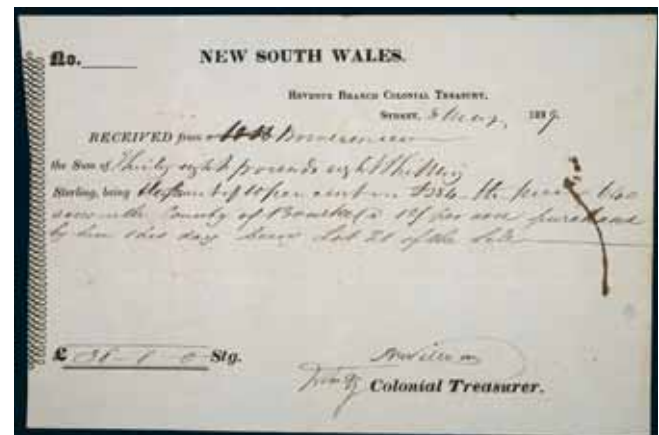 No.
NEW SOUTH WALES.
REVENUE BRANCH COLONIAL TREASURY,
SYDNEY, May, 1839.
RECEIVED from
the Sum of Thirty eight pounds eight Shillings
Sterling, being per cent on £384 the price 640
acres in the County of per acre purchased
by him this day Lot 21 of the Sale
£ 38 - 8 - 0 Stg.
Colonial Treasurer.